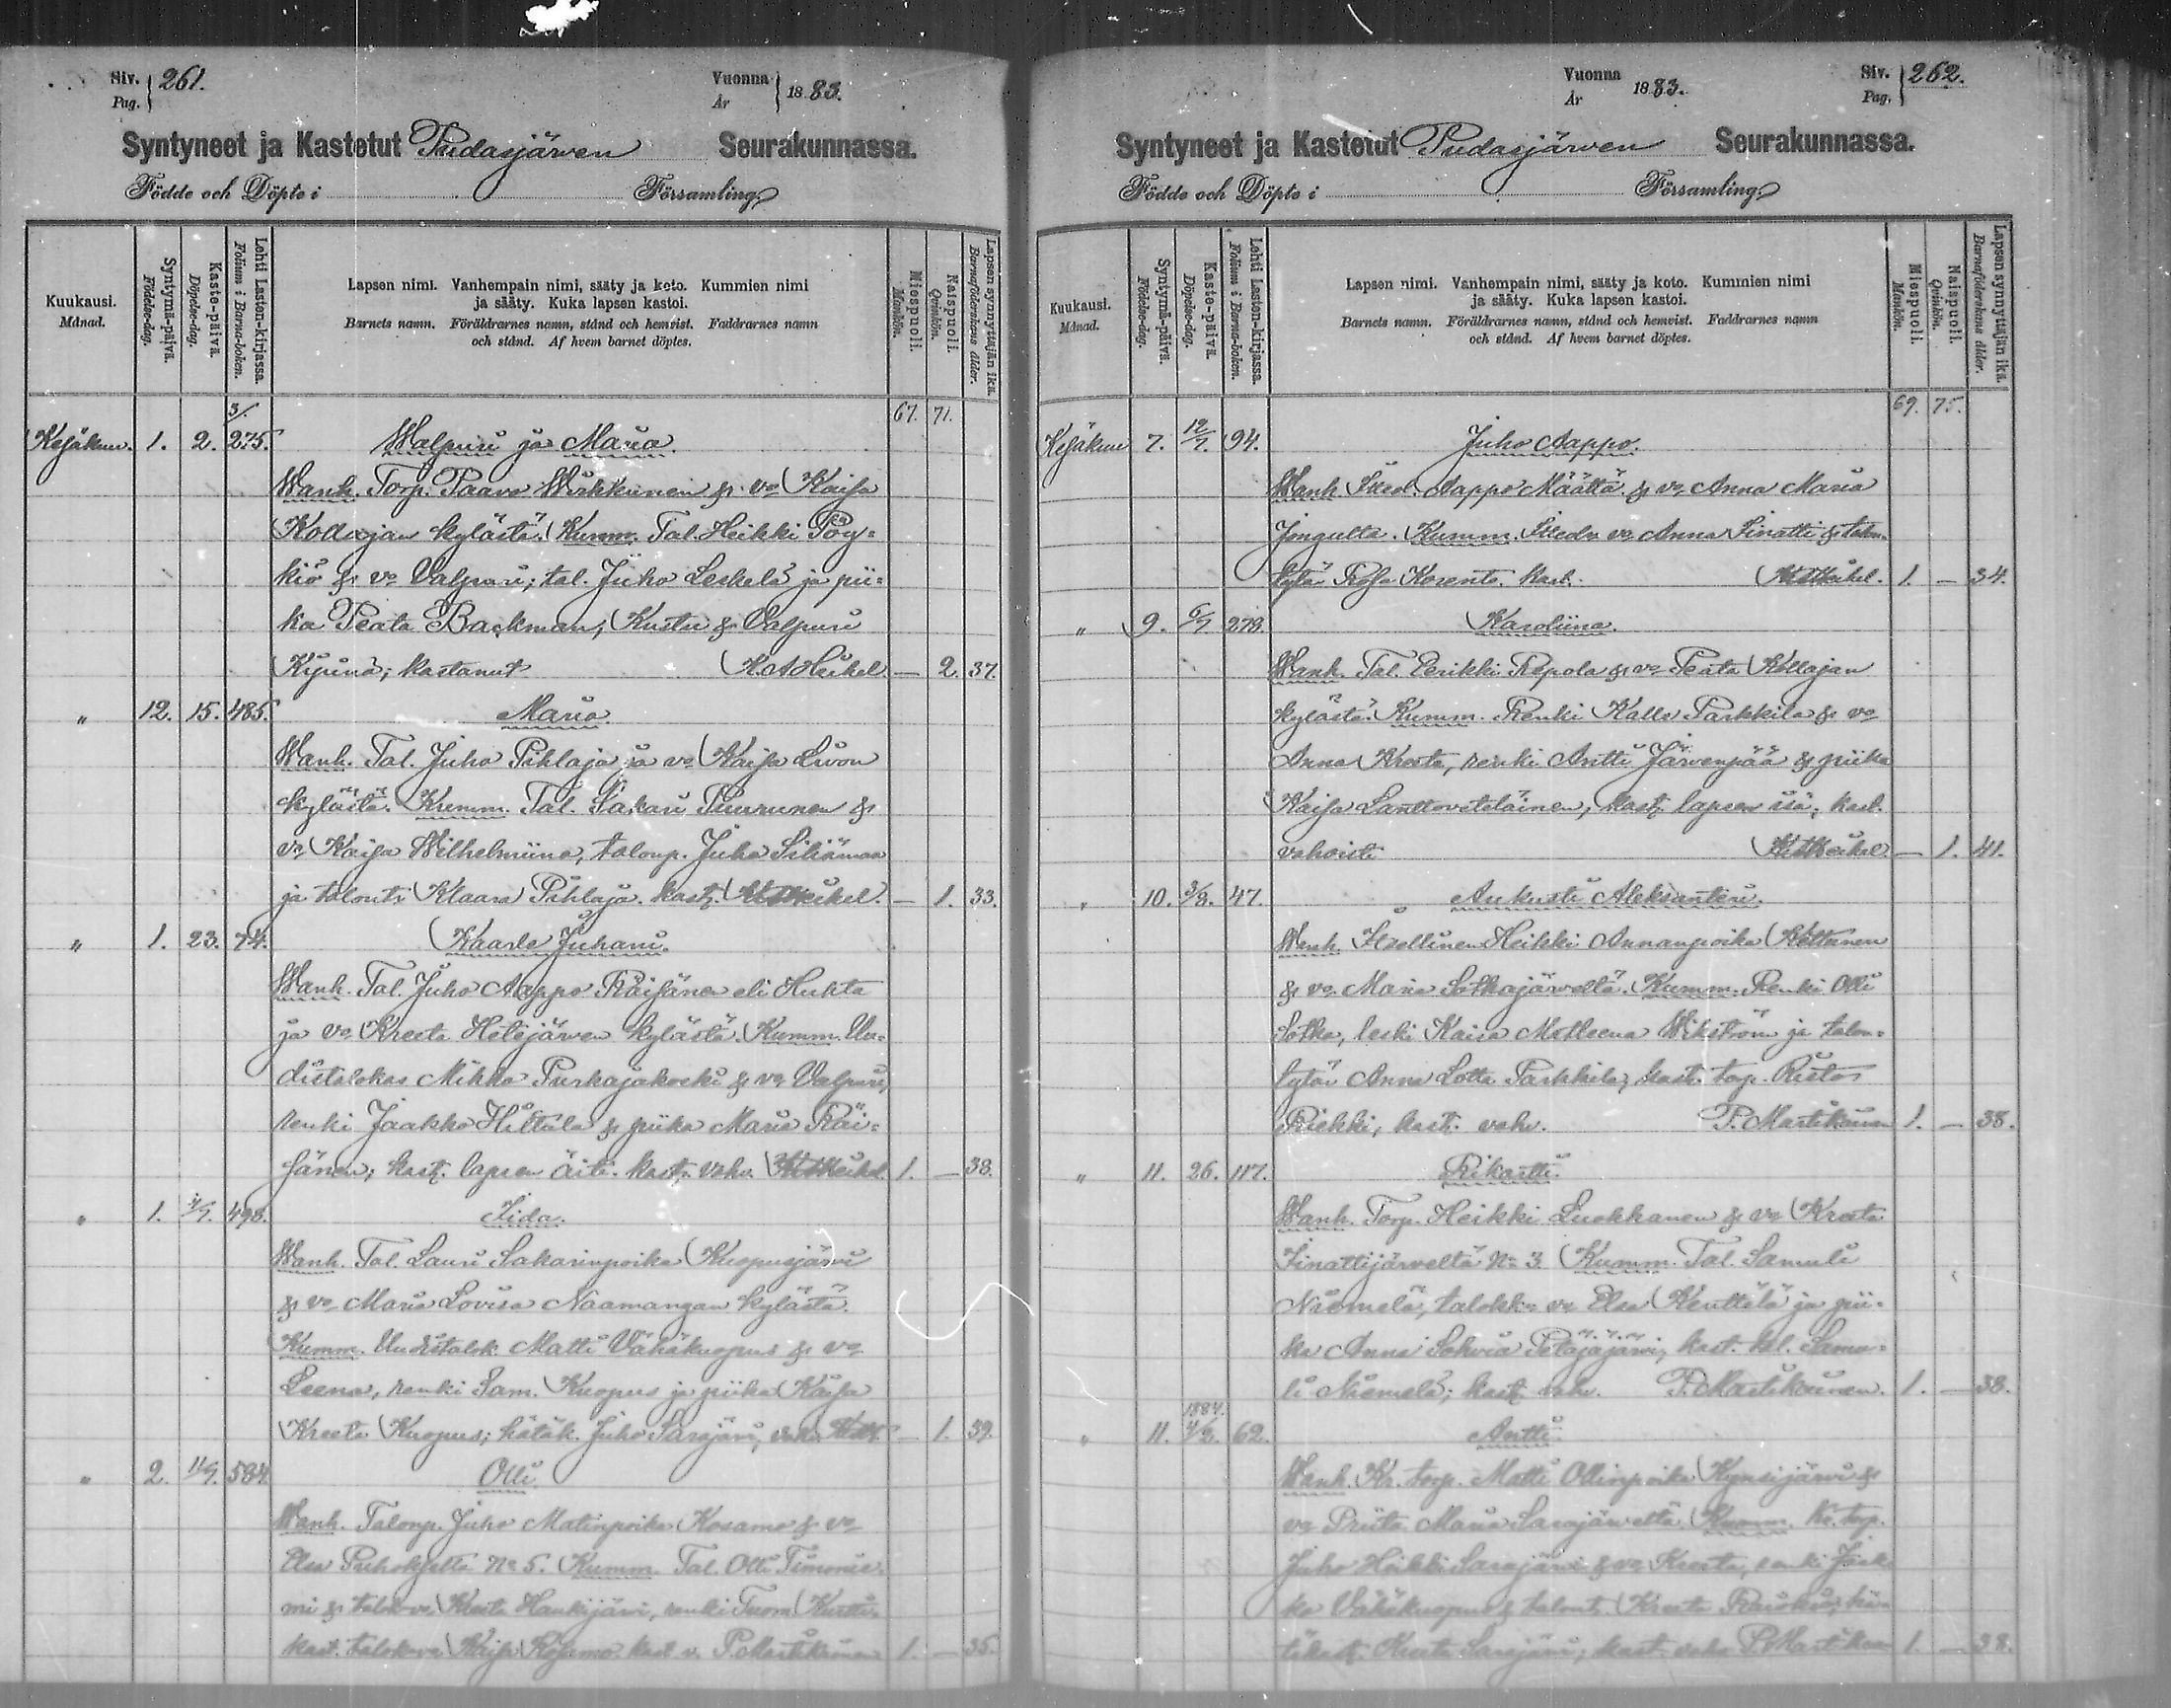 Siv. 261.
Pag.
Vuonna 1883.
År
Syntyneet ja Kastetut Pudasjärwen Seurakunnassa.
Födde och Döpte i Församling
Kuukausi.
Månad.
Syntymä-päivä.
Födelse-dag.
Kaste-päivä.
Döpelse-dag.
Lehti Lasten-kirjassa.
Folium i Barna-boken.
Lapsen nimi. Vanhempain nimi, sääty ja koto. Kummien nimi
ja sääty. Kuka lapsen kastoi.
Barnets namn. Föräldrarnes namn, stånd och hemvist. Faddrarnes namn
och stånd. Af hvem barnet döptes.
Miespuoli.
Mankön.
Naispuoli.
Qvinkön.
Lapsen synnyttäjän ikä.
Barnaföderskans ålder.
3/. 67. 71.
Kesäkuu. 1. 2. 275. Walpuri ja Maria.
Wanh. Torp. Paavo Wirkkunen & vo Kaisa
Kollajan kylästä. Kumm. Tal. Heikki Pöy=
kiö & vo Valpuri; tal. Juho Leskelä ja pii=
ka Peata Backman; Kustu & Valpuri
; kastanut K. A. Heikel — 2. 37.
" 12. 15. 485. Maria.
Wanh. Tal. Juho Pihlaja ja vo Kaisa Livon
kylästä. Kumm. Tal. Sakari Puurunen &
vo Kaisa Wilhelmiina, talonp. Juho Siliämaa
ja talontr Klaara Pihlaja. kast. KAHeikel. — 1. 33.
" 1. 23. 74. Kaarle Juhani.
Wanh. Tal. Juho Aappo Räisänen eli Huhta
ja vo Kreeta Hetejärven kylästä. Kumm. Uu=
distalokas Mikko Purkajakoski & vo Valpuri,
renki Jaakko Hiltula & piika Maria Räi=
sänen; kast. lapsen äiti. kast. vahv. KAHeikel. 1. — 38.
" 1. 4/7. 498. Iida.
Wanh. Tal. Lauri Sakarinpoika Kuopusjärvi
& vo Maria Lovisa Naamangan kylästä.
Kumm. Uudistalok. Matti Vähäkuopus & vo
Leena, renki Sam. Kuopus ja piika Kaisa
Kreeta Kuopus; hätäk. Juho Sarajärvi, vahv. — 1. 39.
" 2. 11/7. 584. Olli.
Wanh. Talonp. Juho Matinpoika Kosamo & vo
Elsa Puhokselta No 5. Kumm. Tal. Olli Timonie=
mi & talok. vo Kreeta Haukijärvi, renki Tuom. Kurtti.
kast. talok. vo Kaisa Kosamo. kast. v. P. Martikainen 1. — 35.
Vuonna 1883.
År
Siv. 262.
Pag.
Syntyneet ja Kastetut Pudasjärwen Seurakunnassa.
Födde och Döpte i Församling
Kuukausi.
Månad.
Syntymä-päivä.
Födelse-dag.
Kaste-päivä.
Döpelse-dag.
Lehti Lasten-kirjassa.
Folium i Barna-boken.
Lapsen nimi. Vanhempain nimi, sääty ja koto. Kummien nimi
ja sääty. Kuka lapsen kastoi.
Barnets namn. Föräldrarnes namn, stånd och hemvist. Faddrarnes namn
och stånd. Af hvem barnet döptes.
Miespuoli.
Mankön.
Naispuoli.
Qvinkön.
Lapsen synnyttäjän ikä.
Barnaföderskans ålder.
69. 75.
Kesäkuu 7. 12/7. 94. Juho Aappo.
Wanh. Aappo Määttä & vo Anna Maria
Jongulta. Kumm. vo Anna Sinatti & talon=
tytär Korento. kast. KAHeikel. 1. — 34.
" 9. 6/7. 279. Karoliina.
Wanh. Tal. Eerikki Repola & vo Peata Kollajan
kylästä. Kumm. Renki Kalle Parkkila & vo
Anna Kreeta, renki Antti Järvenpää & piika
Kaisa; kast. lapsen isä, kast.
vahvisti KAHeikel — 1. 41.
" 10. 3/8. 47. Aukusti Aleksanteri.
Wanh. Itsellinen Heikki Annanpoika
& vo Maria Sotkajärveltä. Kumm. Renki Olli
Sotka, leski Kaisa Matleena Wikström ja talon=
tytär Anna Lotta Parkkila; kast. torp. Risto
Riekki; kast. vahv. P. Martikainen 1. — 38.
" 11. 26. 117. Rikartti.
Wanh. Torp. Heikki Luokkanen & vo Kreeta
Sinattijärveltä No 3. Kumm. Tal. Samuli
Niemelä, talokk. vo Elsa Kenttälä ja pii=
ka Anna Sohvia Petäjäjärvi; kast. tal. Samu=
li Niemelä; kast. vahv. P. Martikainen. 1. — 38.
1884.
" 11. 4/2. 62. Antti.
Wanh. Kr. torp. Matti Ollinpoika Kynsijärvi &
vo Priita Maria Sarajärveltä. Kumm. Kr. torp.
Juho Heikki Sarajärvi & vo Kreeta, renki Jaak=
ko Vähäkuopus & talont. Kreeta hä=
täkast. Kreeta Sarajärvi; kast. vahv. P. Martikain 1. — 38.